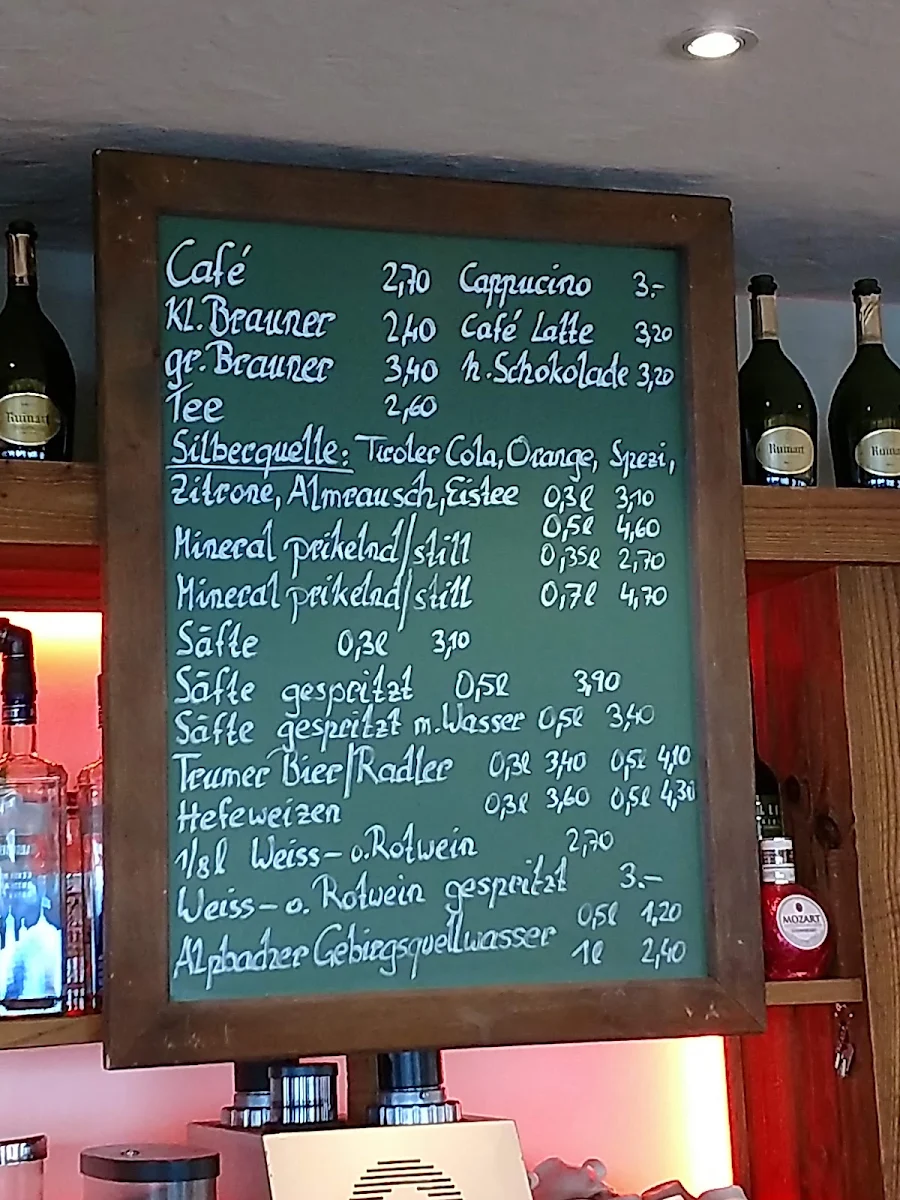 Café 2,70 Cappucino 3.-
Kl. Brauner 2,40 Café Latte 3,20
gr. Brauner 3,40 h. Schokolade 3,20
Tee 2,60
Silberquelle: Tiroler Cola, Orange, Spezi,
Zitrone, Almrausch, Eistee 0,3l 3,10
0,5l 4,60
Mineral prikelnd/still 0,35l 2,70
Mineral prikelnd/still 0,7l 4,70
Säfte 0,3l 3,10
Säfte gespritzt 0,5l 3,90
Säfte gespritzt m. Wasser 0,5l 3,40
Trumer Bier/Radler 0,3l 3,40 0,5l 4,10
Hefeweizen 0,3l 3,60 0,5l 4,30
1/8l Weiss- o. Rotwein 2,70
Weiss- o. Rotwein gespritzt 3.-
Alpbacher Gebirgsquellwasser 0,5l 1,20
1l 2,40
Ruinart
Ruinart
Ruinart
MOZART